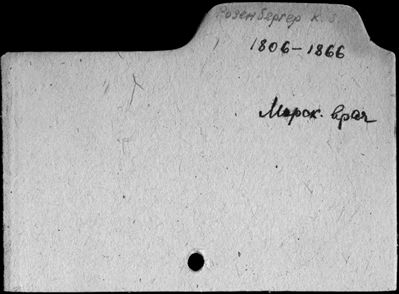 Розенбергер К.
1806-1866
Морск. врач